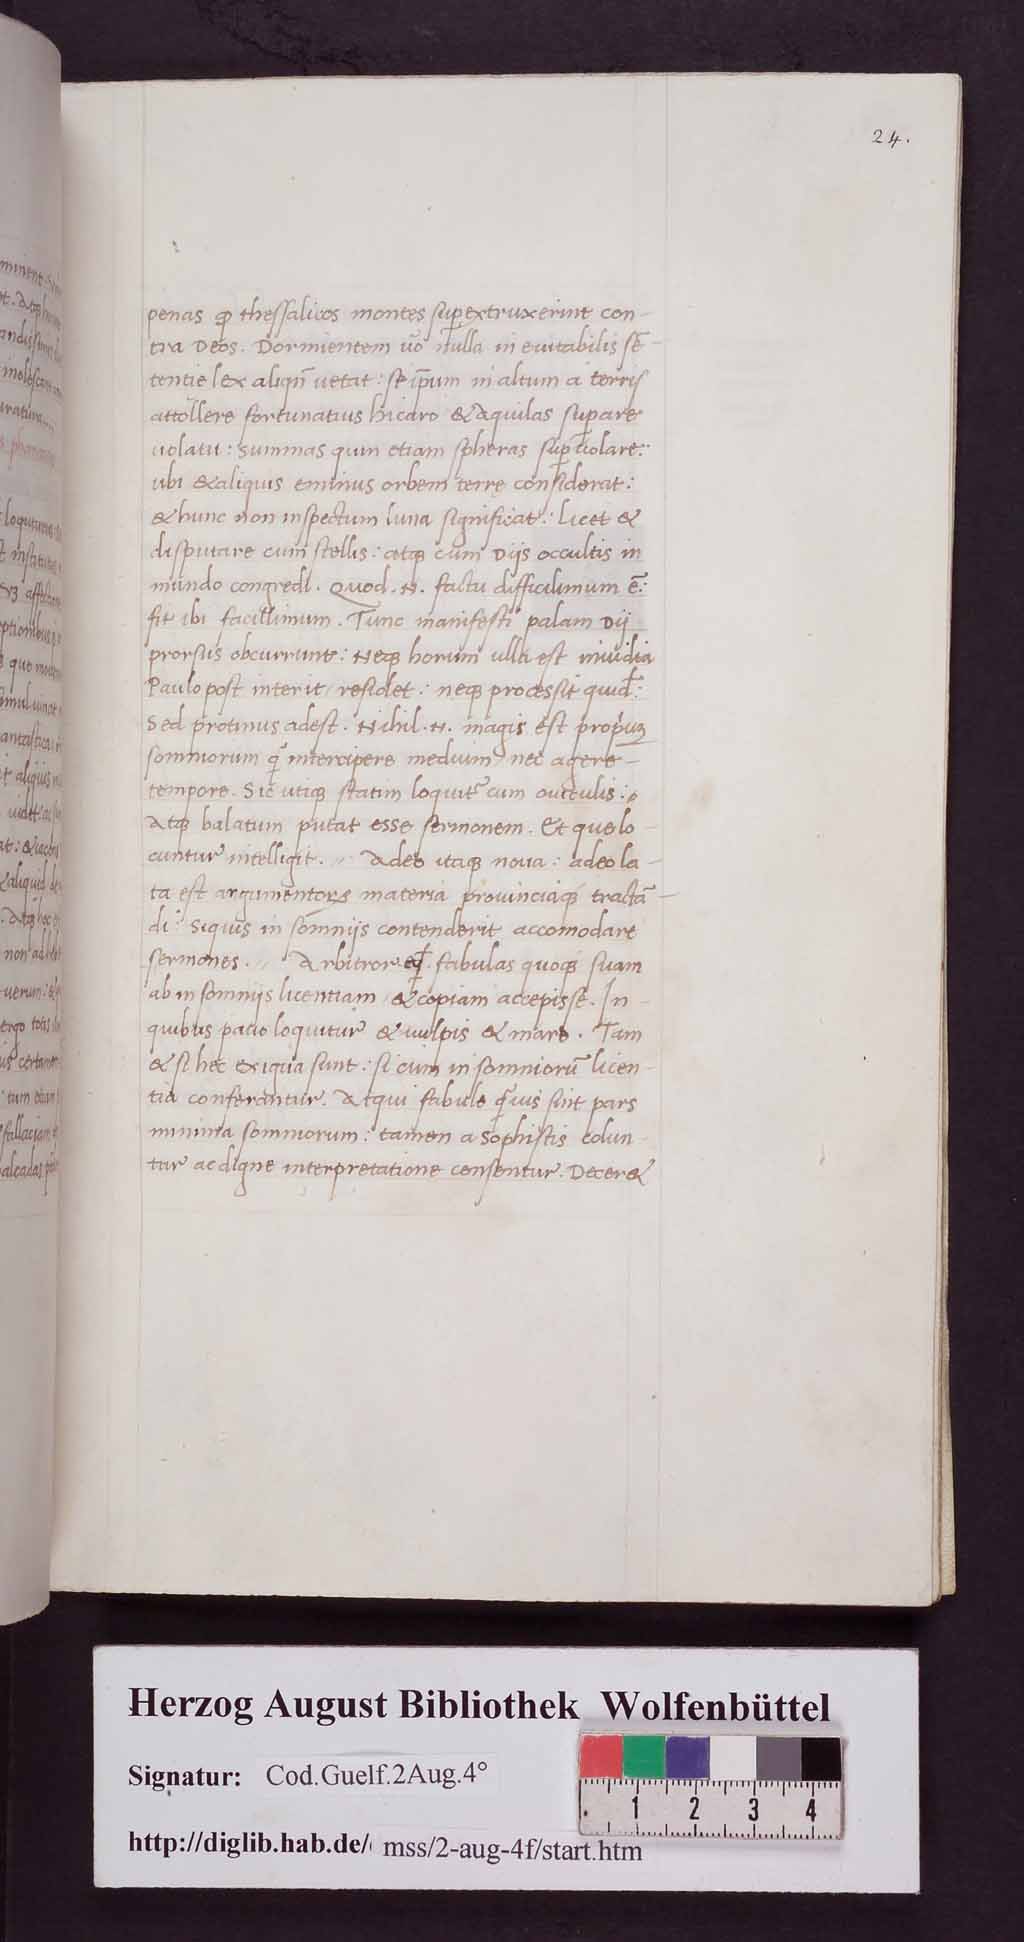 24.
penas ꝙ thessalicos montes suꝑextruxerint con-
tra Deos. Dormientem uo̅ nulla in euitabilis se̅-
tentie lex aliqn̅ uetat: se ip̅um in altum a terris
attollere fortunatius hicaro & aquilas suꝑare
uolatu: summas quin etiam spheras suꝑuolare:
ubi & aliquis eminus orbem terrę considerat:
& hunc non inspectum luna significat: licet &
disputare cum stellis: atqꝫ cum Dijs occultis in
mundo congredi. Quod .N. factu difficilimum e̅:
fit ibi facillimum. Tunc manifesti palam Dij
prorsus obcurrunt: Neqꝫ horum ulla est inuidia
Paulo post interit / residet: neqꝫ processit quid̅:
Sed protinus adest. Nihil .N. magis est propiuꝫ
somniorum qͣ intercipere medium / nec agere-
tempore. Sic utiqꝫ statim loquit᷑ cum ouiculis:
Atqꝫ balatum putat esse sermonem. Et que lo-
cuntur intelligit. // Adeo itaqꝫ noua: adeo la-
ta est argumentoꝝ materia prouinciaqꝫ tracta̅-
di: Siquis in somnijs contenderit accomodare
sermones. // Arbitror eq̅. fabulas quoqꝫ suam
ab in somnijs licentiam / & copiam accepisse. In-
quibus pauo loquitur & uulpis & mare. Tam
& si hec exigua sunt: si cum in somnioru̅ licen-
tia conferantur. Atqui fabule qͣuis sint pars
minima somniorum: tamen a Sophistis colun-
tur ac digne interpretatione censentur. Decer&
Herzog August Bibliothek Wolfenbüttel
Signatur: Cod.Guelf.2Aug.4°
http://diglib.hab.de/ mss/2-aug-4f/start.htm
1 2 3 4